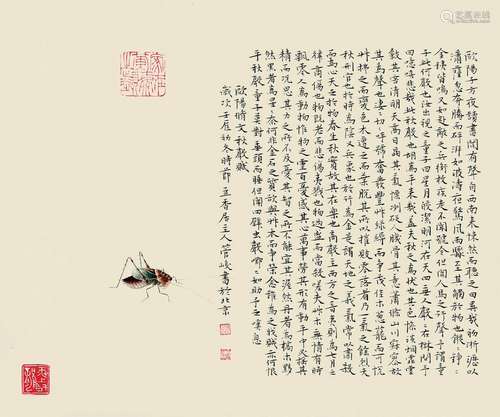 歐陽子方夜讀書聞有聲自西南來悚然而聽之曰異哉初淅瀝以
瀟颯忽奔騰而砰湃如波濤夜驚風雨驟至其觸於物也鏦鏦錚錚
金鐵皆鳴又如赴敵之兵銜枚疾走不聞號令但聞人馬之行聲予謂童
子此何聲也汝出視之童子曰星月皎潔明河在天四無人聲聲在樹間予
曰噫嘻悲哉此秋聲也胡為乎來哉蓋夫秋之為狀也其色慘淡煙霏雲
斂其容清明天高日晶其氣慄冽砭人肌骨其意蕭條山川寂寥故
其為聲也淒淒切切呼號奮發豐艸綠縟而爭茂佳木蔥蘢而可悅
艸拂之而色變木遭之而葉脫其所以摧敗零落者乃一氣之餘烈夫
秋刑官也於時為陰又兵象也於行為金是謂天地之義氣常以肅殺
而為心天之於物春生秋實故其在樂也商聲主西方之音夷則為七月之
律商傷也物既老而悲傷夷戮也物過盛而當殺嗟夫艸木無情有時
飄零人為動物惟物之靈百憂感其心萬事勞其形有動乎中必搖其
精而況思其力之所不及憂其智之所不能宜其渥然丹者為槁木黟
然黑者為星星奈何非金石之質欲與艸木而爭榮念誰為之戕賊亦何恨
乎秋聲童子莫對垂頭而睡但聞四壁蟲聲唧唧如助予之嘆息
歐陽脩文秋聲賦
歲次壬辰初冬時節五香居主人菅峻書於北京